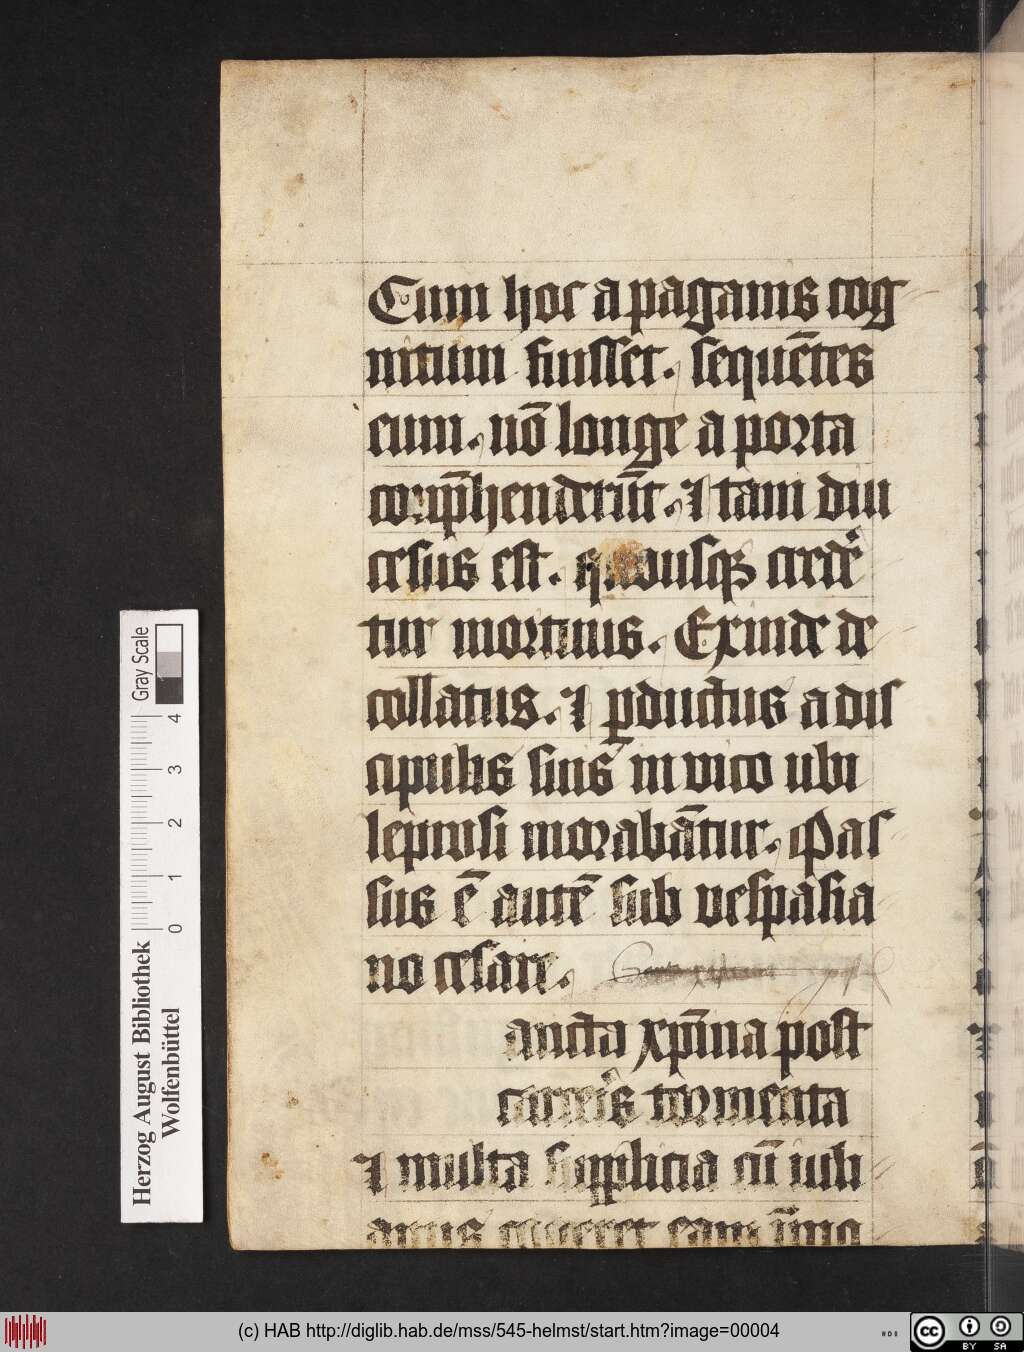 Cum hoc a paganis cog
nitum fuisset. sequētes
eum. nō longe a porta
cōp̄henderūt. ⁊ tam diu
cesus est. quousqꝫ crede͛
tur mortuus. Exinde de
collatus. ⁊ ꝑductus a dis
cipulis suis in vico ubi
leprosi morabātur. Pas
sus ē autē sub vespasia
no cesare.
ancta xp̄ina post
carceris tormenta
⁊ multa supplicia cū iuli
anus eam īmo
Herzog August Bibliothek
Wolfenbüttel
Gray Scale
0 1 2 3 4
(c) HAB http://diglib.hab.de/mss/545-helmst/start.htm?image=00004
cc BY SA